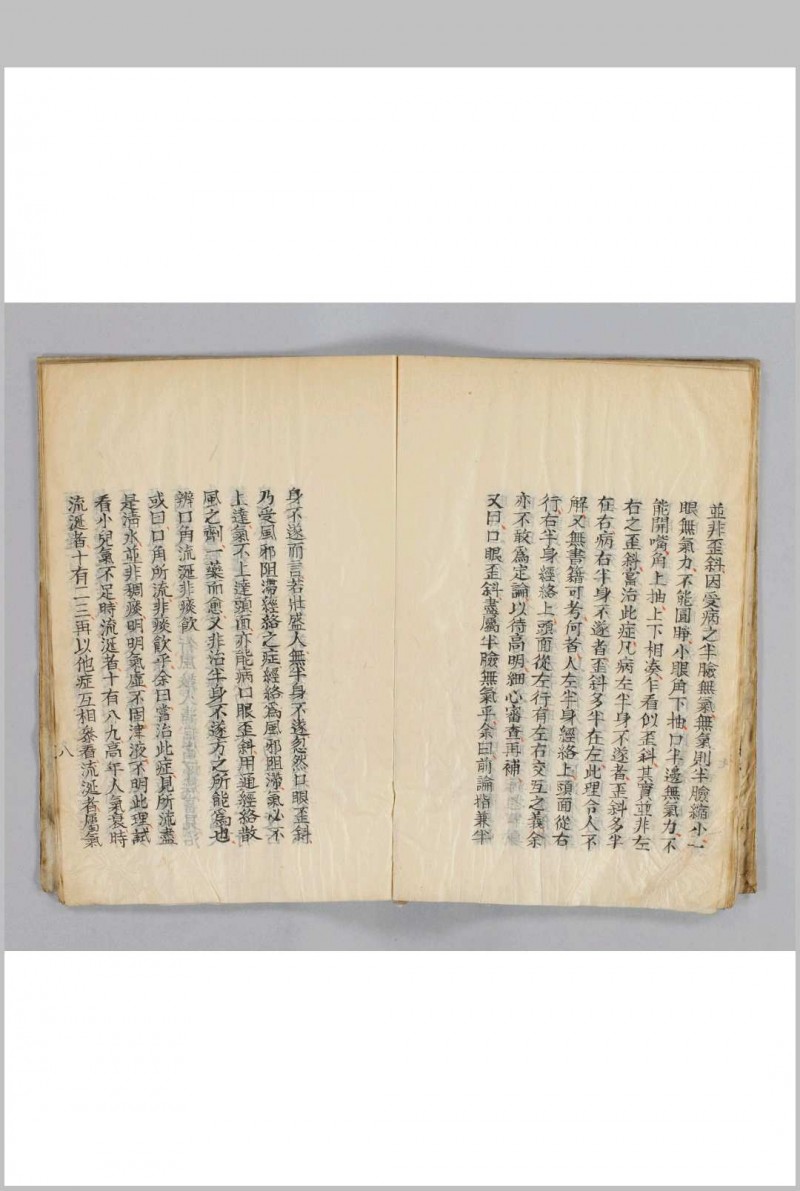 並非歪斜因受病之半臉無氣無氣則半臉縮小一
眼無氣力不能圓睜小眼角下抽口半邊無氣力不
能開嘴角上抽上下相湊乍看似歪斜其實並非左
右之歪斜嘗治此症凡病左半身不遂者歪斜多半
在右病右半身不遂者歪斜多半在左此理令人不
解又無書籍可考何者人左半身經絡上頭面從右
行右半身經絡上頭面從左行有左右交互之義余
亦不敢為定論以待高明細心審查再補
又曰口眼歪斜盡屬半臉無氣乎余曰前論指兼半
身不遂而言若壯盛人無半身不遂忽然口眼歪斜
乃受風邪阻滯經絡之症經絡為風邪阻滯氣必不
上達氣不上達頭面亦能病口眼歪斜用通經絡散
風之劑一藥而愈又非治半身不遂方之所能為也
辨口角流涎非痰飲
或曰口角所流非痰飲乎余曰嘗治此症見所流盡
是清水並非稠痰明明氣虛不固津液不明此理試
看小兒氣不足時流涎者十有八九高年人氣衰時
流涎者十有二三再以他症互相參看流涎者屬氣
八